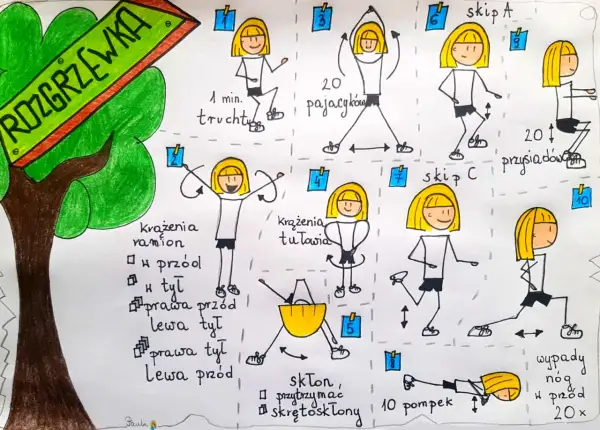 ROZGRZEWKA
1
1 min.
truchtu
2
krążenia
ramion
w przód
w tył
prawa przód
lewa tył
prawa tył
lewa przód
3
20
pajacyków
4
krążenia
tułowia
5
skłon
przytrzymać
skrętoskłony
6
skip A
7
skip C
8
10 pompek
9
20
przysiadów
10
wypady
nóg
w przód
20 x